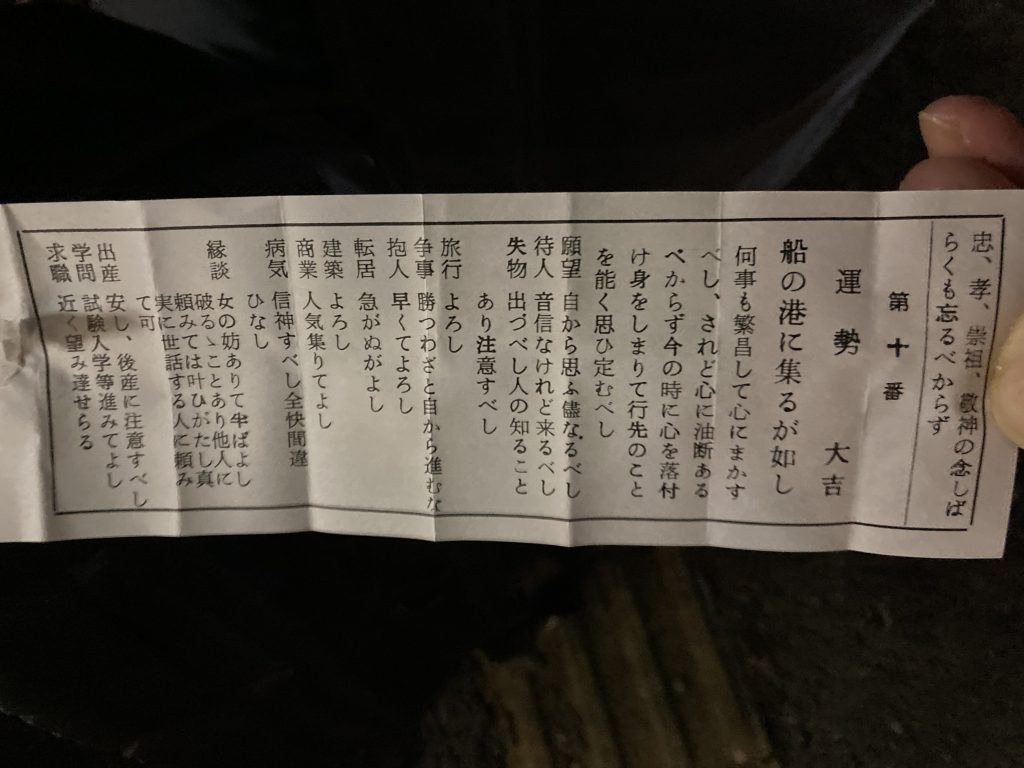 忠、孝、崇祖、敬神の念しば
らくも忘るべからず
第十番
運勢 大吉
船の港に集るが如し
何事も繁昌して心にまかす
べし、されど心に油断ある
べからず今の時に心を落付
け身をしまりて行先のこと
を能く思ひ定むべし
願望 自から思ふ儘なるべし
待人 音信なけれど来るべし
失物 出づべし人の知ること
あり注意すべし
旅行 よろし
争事 勝つわざと自から進むな
抱人 早くてよろし
転居 急がぬがよし
建築 よろし
商業 人気集りてよし
病気 信神すべし全快間違
ひなし
縁談 女の妨ありて半ばよし
破るゝことあり他人に
頼みては叶ひがたし真
実に世話する人に頼み
て可
出産 安し、後産に注意すべし
学問 試験入学等進みてよし
求職 近く望み達せらる